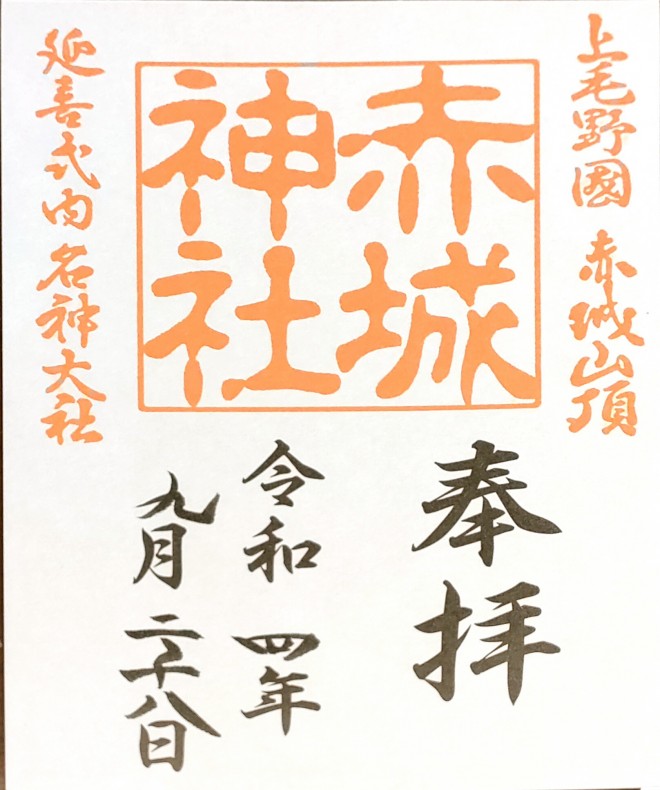 上毛野國 赤城山頂
赤城
神社
延喜式内名神大社
奉拝
令和 四年
九月 二十八日